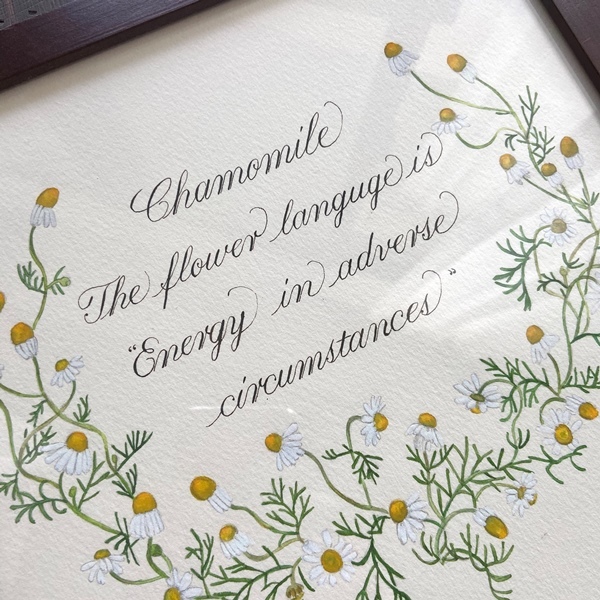 Chamomile
The flower languge is
“Energy in adverse
circumstances”